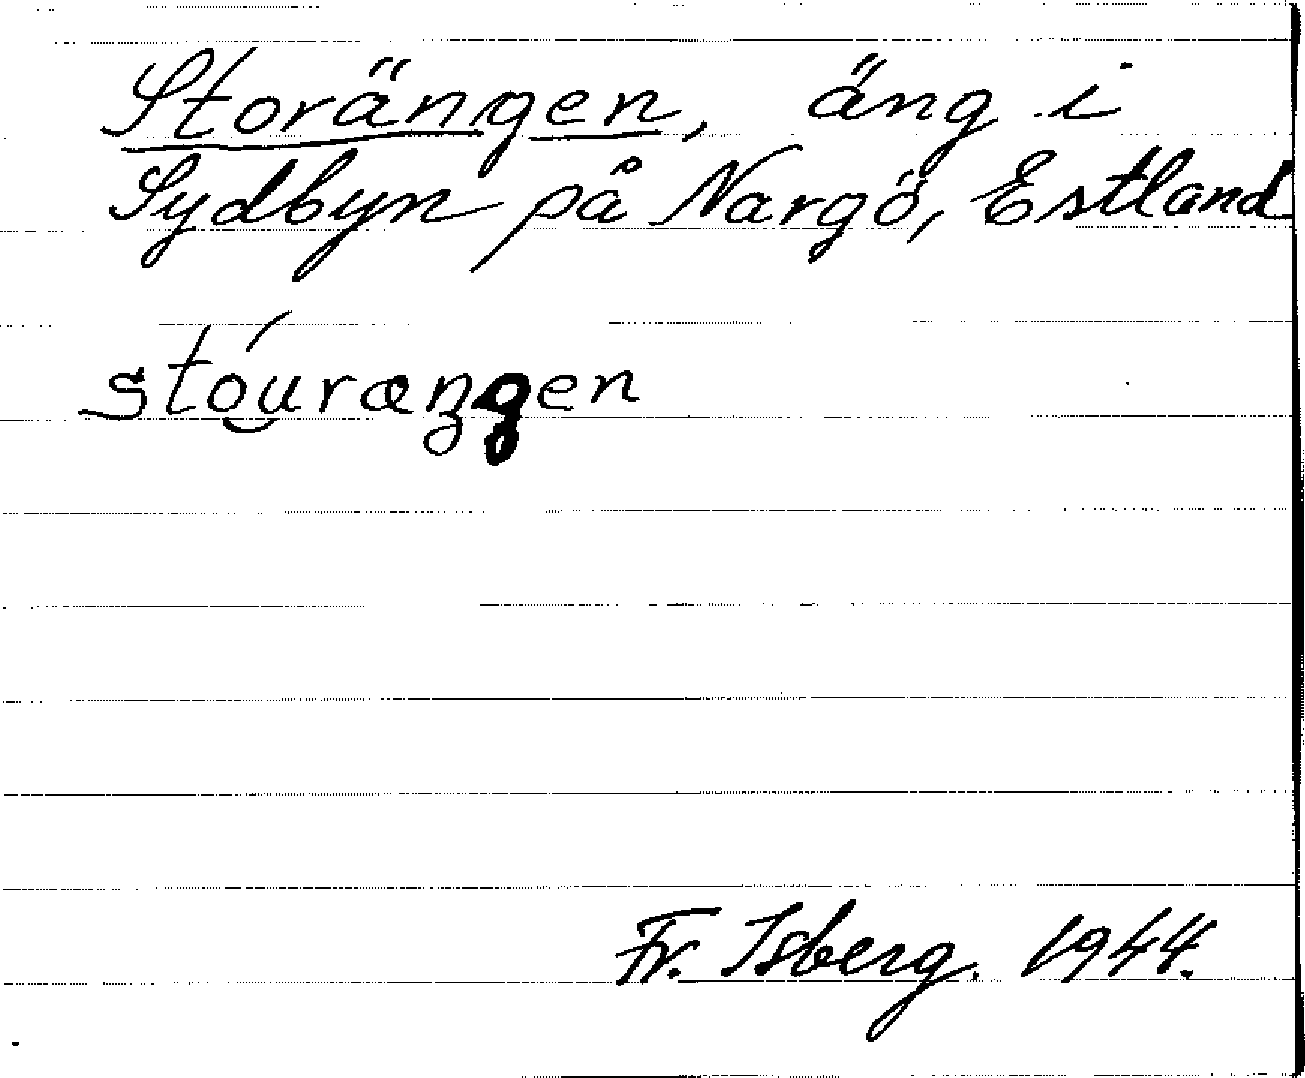 Storängen, äng i
Sydbyn på Nargö, Estland
stóu̯ræŋgen
Fr. Isberg. 1944.